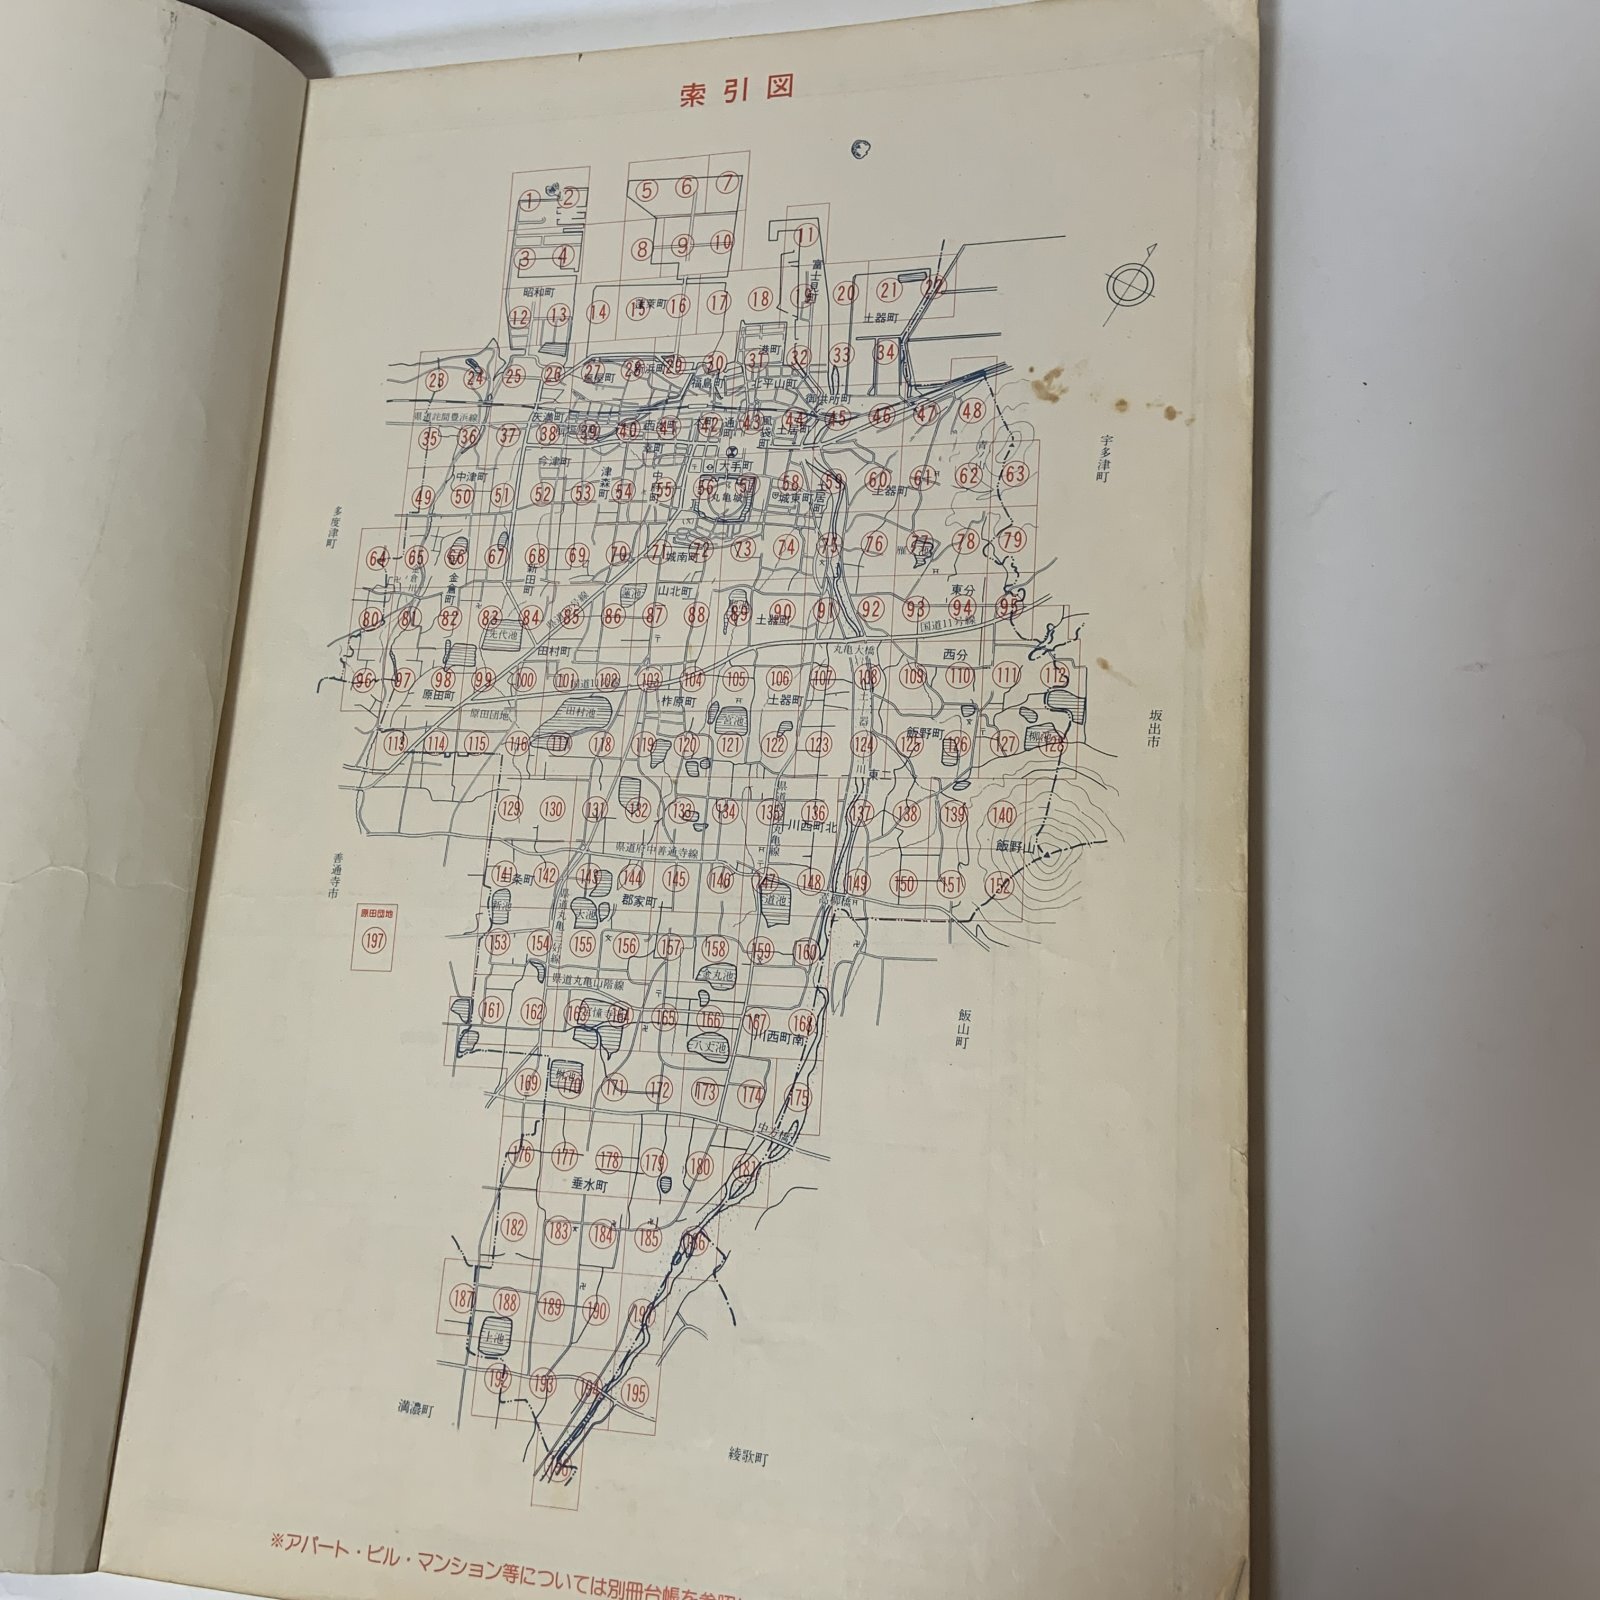 索引図
① ② ⑤ ⑥ ⑦
③ ④ ⑧ ⑨ ⑩ ⑪
昭和町
富士見町
⑫ ⑬ ⑭ ⑮ ⑯ ⑰ ⑱ ⑲ ⑳ ㉑ ㉒
土器町
港町
23 24 25 26 27 28 29 30 31 32 33 34
福島町
北平山町
御供所町
県道詫間豊浜線
天満町
35 36 37 38 39 40 41 42 43 44 45 46 47 48
宇多津町
今津町
大手町
中津町
津森町
中府町
丸亀城
城東町
土居町
土器町
49 50 51 52 53 54 55 56 57 58 59 60 61 62 63
多度津町
64 65 66 67 68 69 70 71 72 73 74 75 76 77 78 79
城南町
金倉町
新田町
山北町
東分
80 81 82 83 84 85 86 87 88 89 90 91 92 93 94 95
先代池
土器町
国道11号線
田村町
丸亀大橋
西分
96 97 98 99 100 101 102 103 104 105 106 107 108 109 110 111 112
原田町
国道11号線
柞原町
土器町
原田団地
田村池
宮池
坂出市
飯野町
113 114 115 116 117 118 119 120 121 122 123 124 125 126 127 128
土器川
東二
129 130 131 132 133 134 135 136 137 138 139 140
川西町北
飯野山
県道府中善通寺線
善通寺市
141 142 143 144 145 146 147 148 149 150 151 152
三条町
郡家町
新池
大池
道池
高柳橋
原田団地
197
153 154 155 156 157 158 159 160
金丸池
県道丸亀山階線
161 162 163 164 165 166 167 168
川西町南
八丈池
飯山町
169 170 171 172 173 174 175
中方橋
176 177 178 179 180 181
垂水町
182 183 184 185 186
187 188 189 190 191
上池
192 193 194 195
満濃町
綾歌町
196
※アパート・ビル・マンション等については別冊台帳を参照